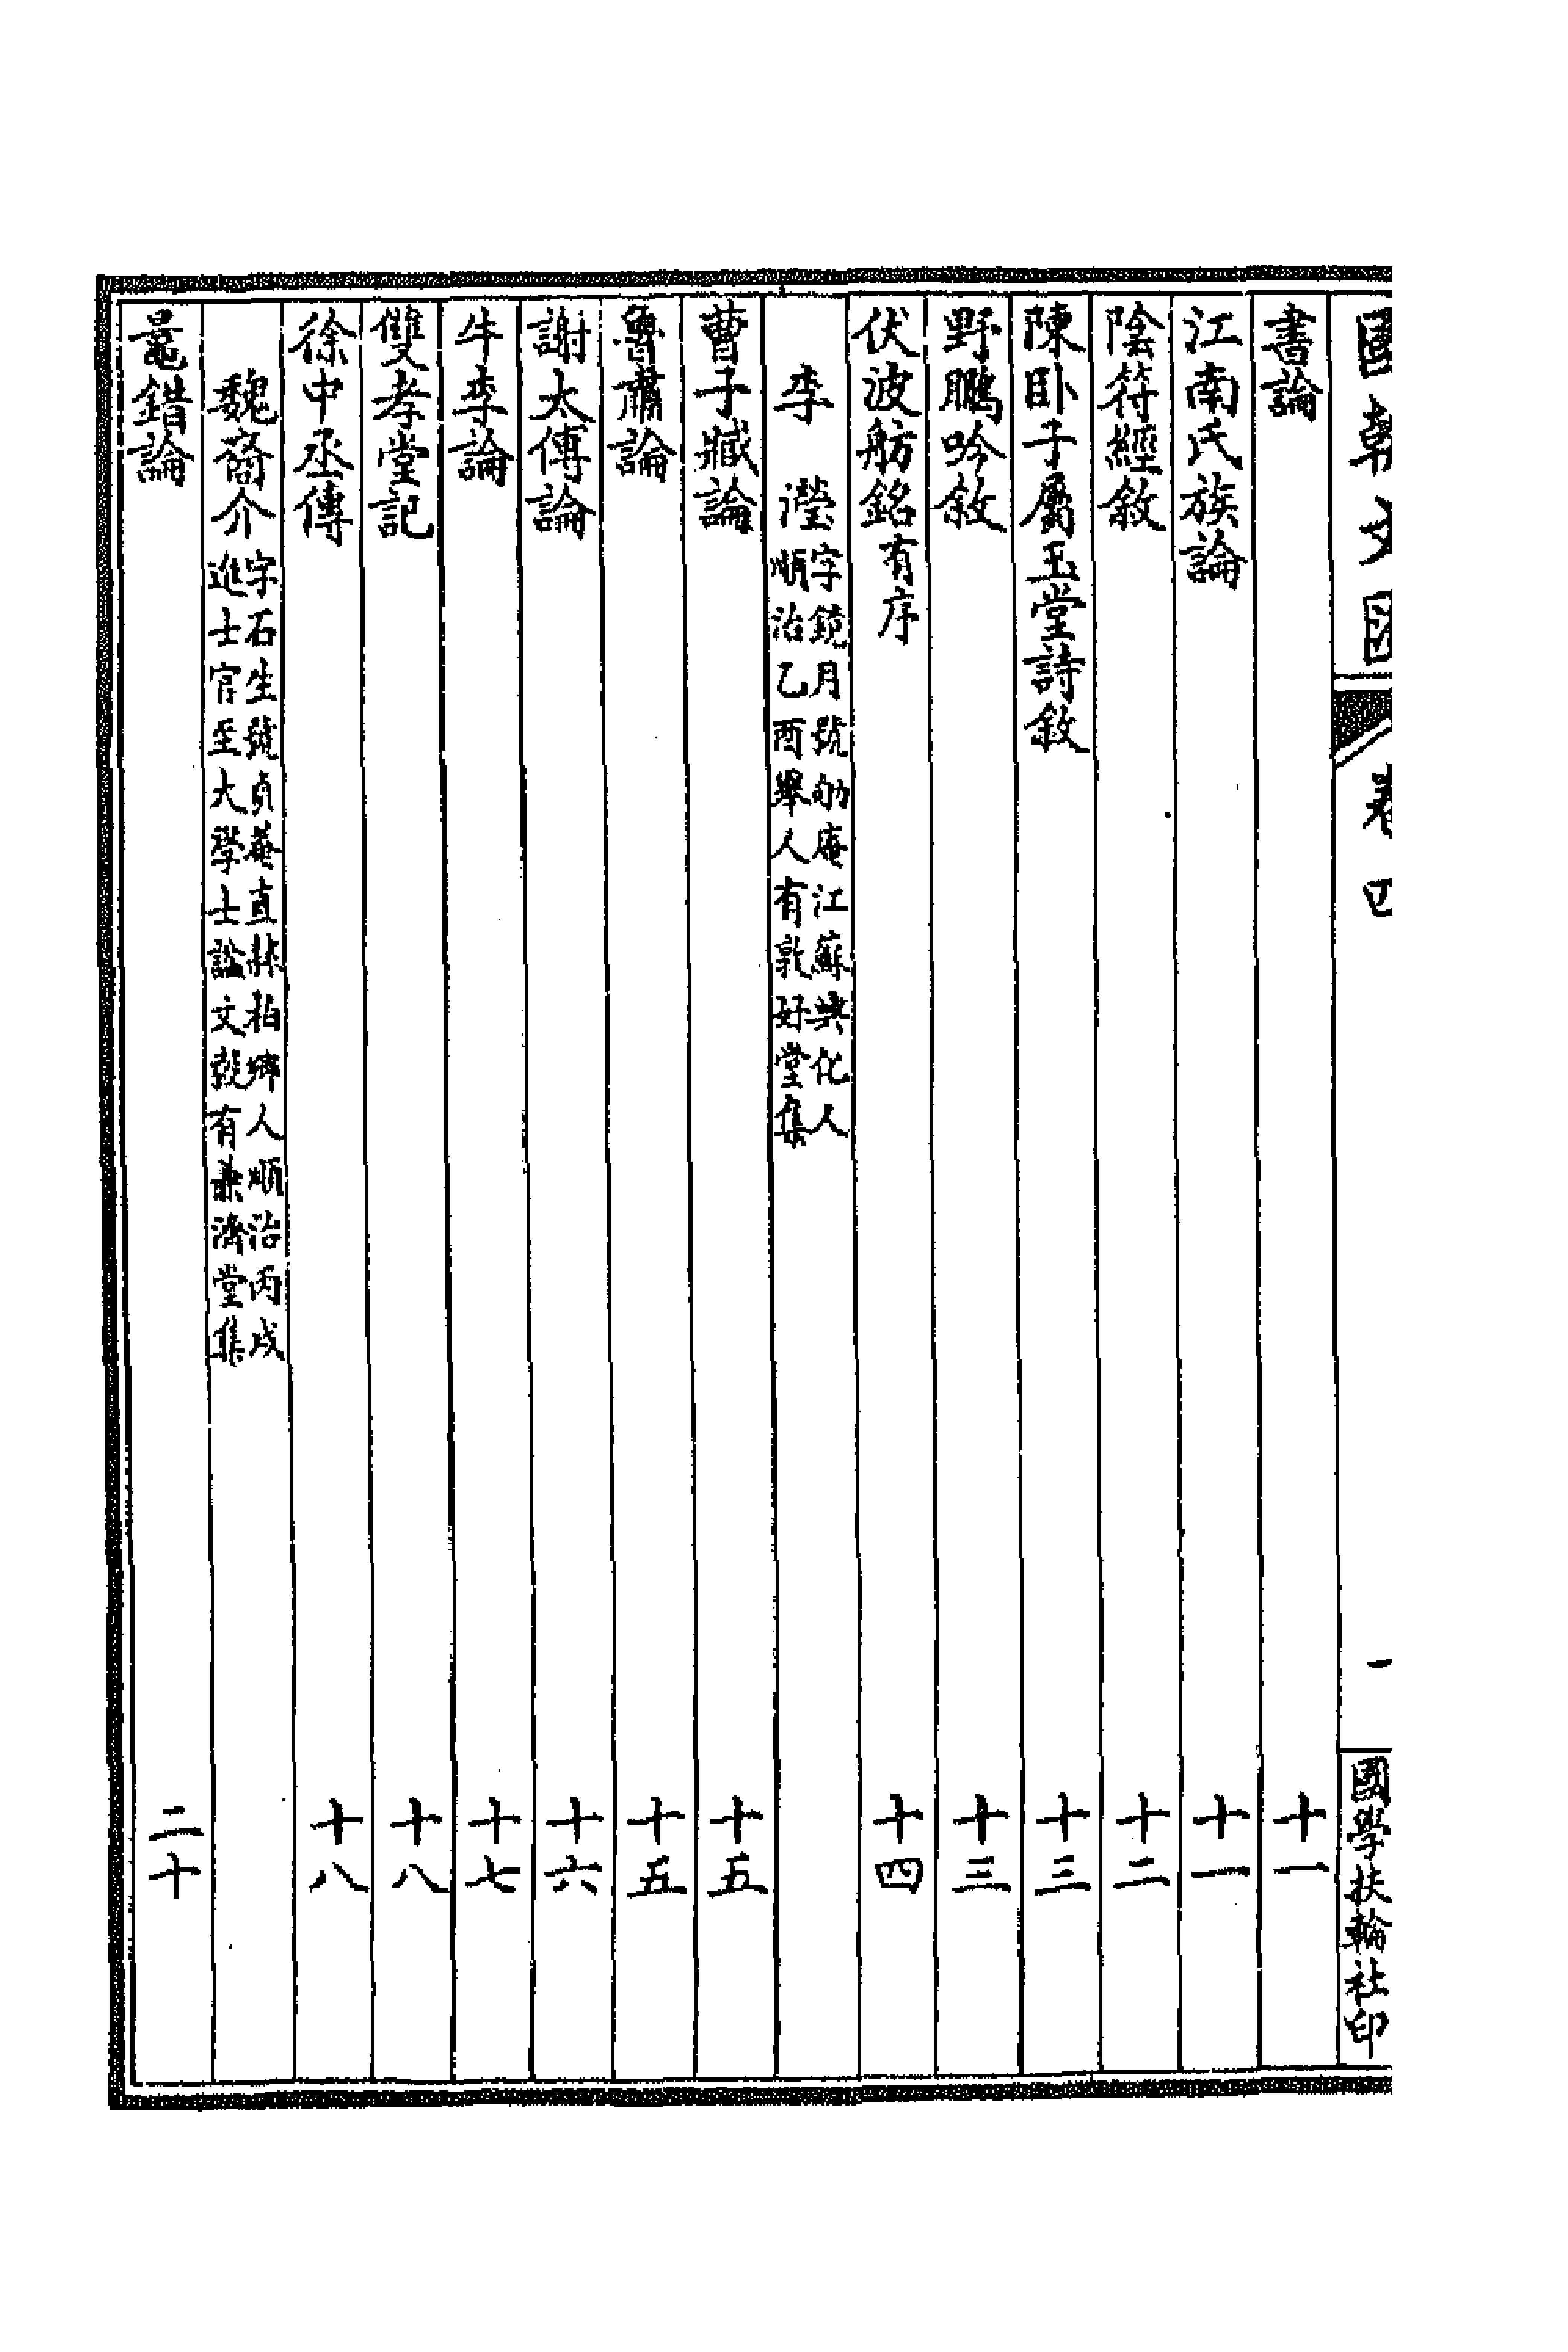 國朝文匯 卷四 一 國學扶輪社印
書論 十一
江南氏族論 十一
陰符經敘 十二
陳卧子屬玉堂詩敘 十三
野鵰吟敘 十三
伏波舫銘有序 十四
李瀅字鏡月號劬庵江蘇興化人
順治乙酉舉人有敦好堂集
曹子臧論 十五
魯肅論 十五
謝太傅論 十六
牛李論 十七
雙孝堂記 十八
徐中丞傳 十八
魏裔介字石生號貞菴直隸柏鄉人順治丙戌
進士官至大學士諡文毅有兼濟堂集
鼂錯論 二十